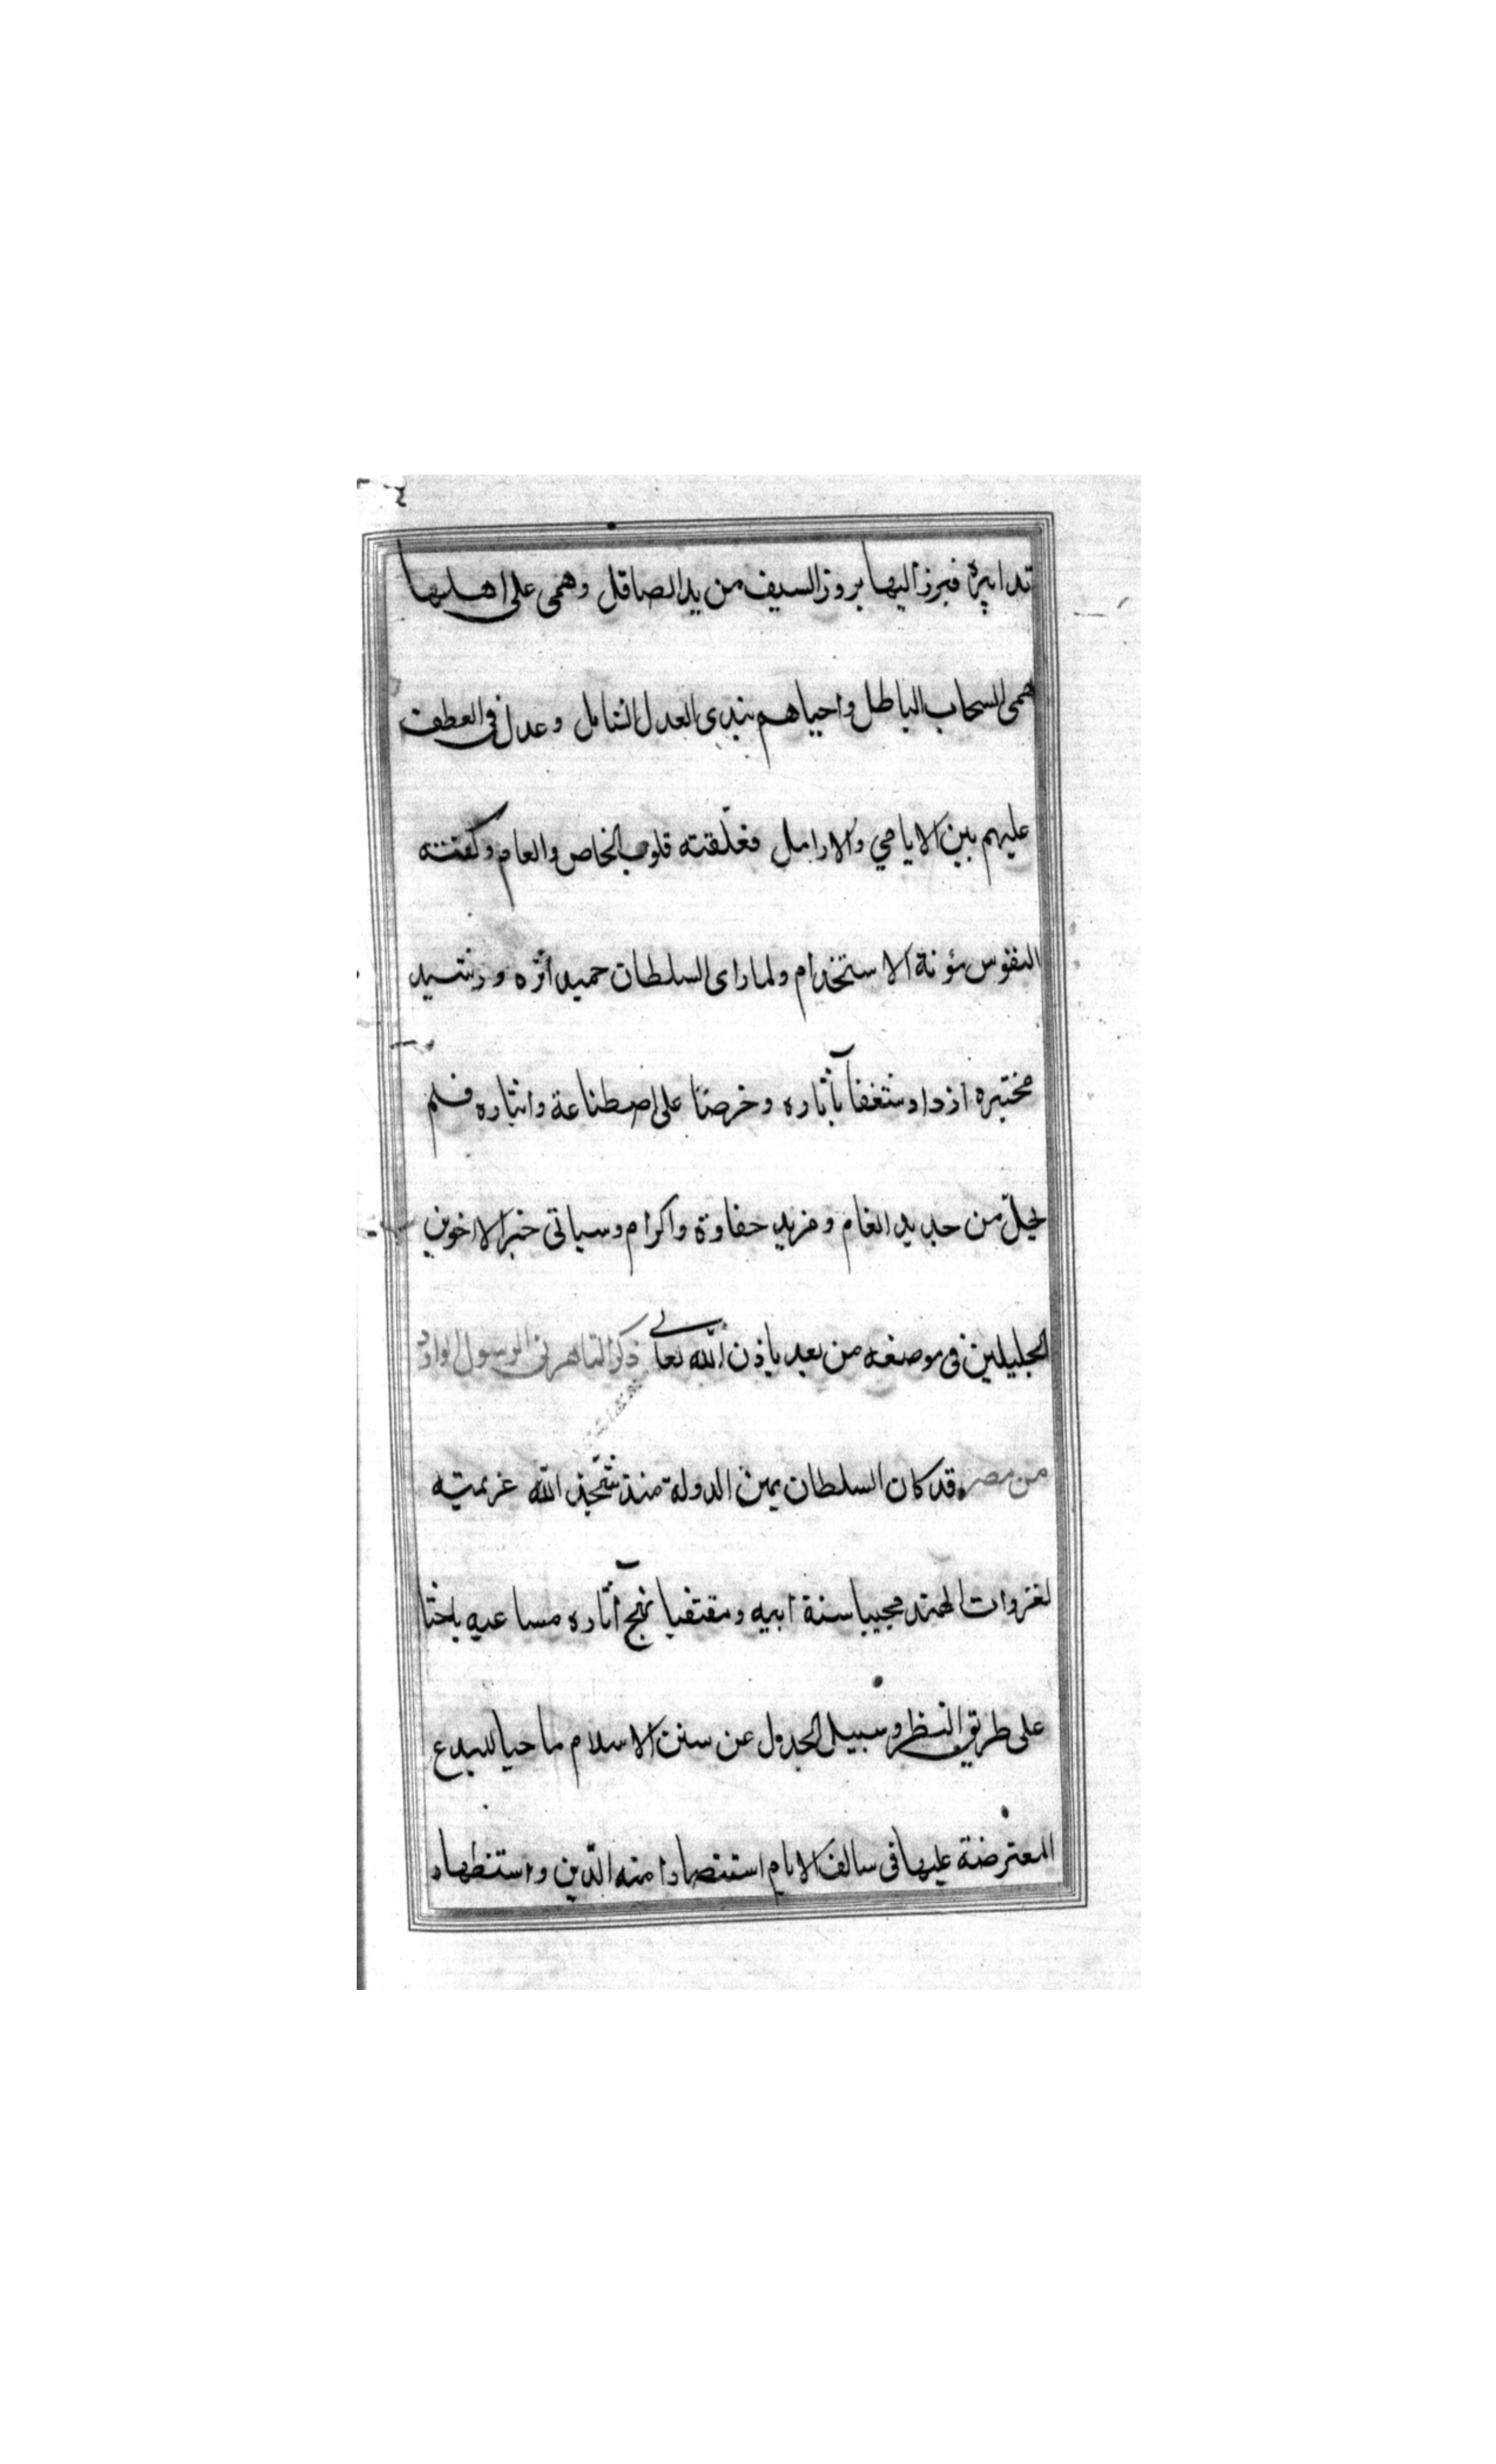 تدابيره فبرز اليها بروز السيف من يد الصاقل وهمى على اهلها
همى السحاب الهاطل واحياهم بندى العدل الشامل وعدل فى العطف
عليهم بين الايامي والارامل فعلّقته قلوب الخاص والعام وكفته
النفوس مؤنة الاستخدام ولما راى السلطان حميد اثره ورشيد
مختبره ازداد شغفا بآثاره وحرصا على اصطناعة وايثاره فلم
يخل من جديد انعام ومزيد حفاوة واكرام وسياتى خبر الاخوين
الجليلين فى موضعه من بعد باذن الله تعالى ذكر التاهرتى الرسول الوارد
من مصر قد كان السلطان يمين الدولة منذ شحّذ الله عزيمته
لغزوات الهند محييا سنة ابيه ومقتفيا نهج آثاره مساعيه باحثا
على طريق النظر وسبيل الجدول عن سنن الاسلام ماحيا للبدع
المعترضة عليها فى سالف الايام استنصارا منه الدّين واستظهار